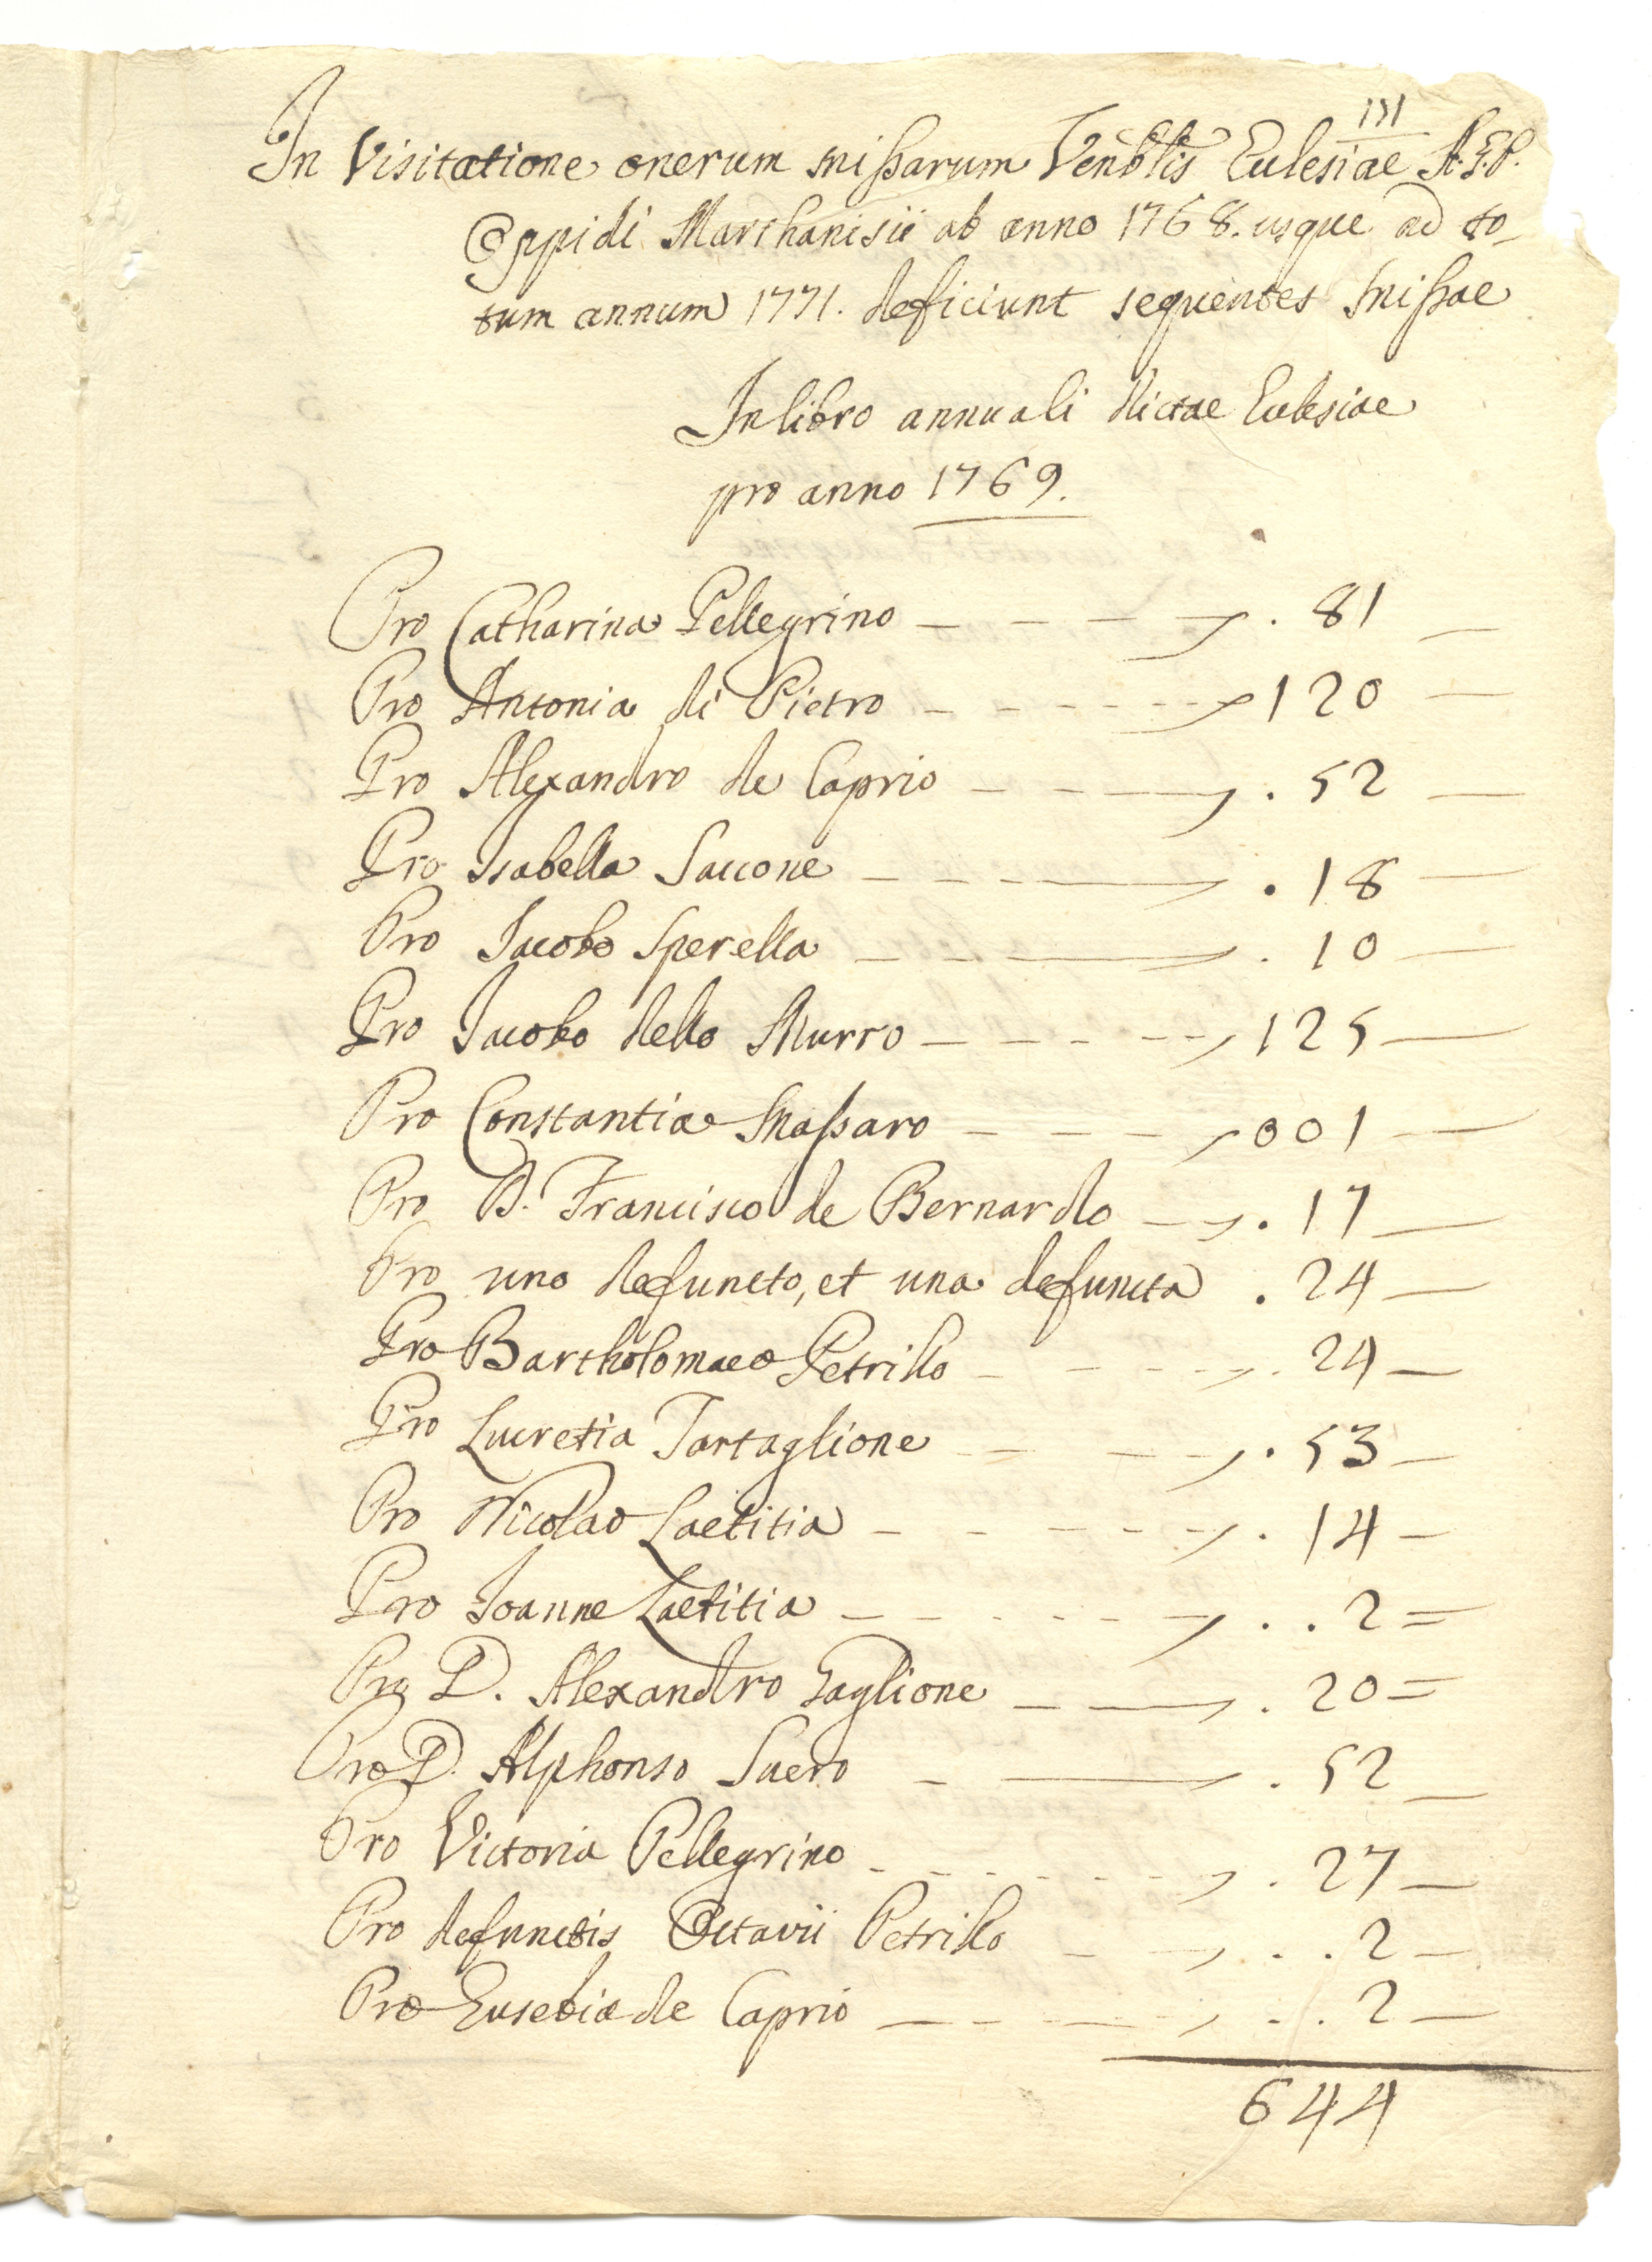 151
In Visitatione onerum missarum Venblis Ecclesiae A. G. P.
Oppidi Marchanisii ab anno 1768. usque ad to-
tum annum 1771. deficiunt sequentes missae
In libro annuali dictae Ecclesiae
pro anno 1769.
Pro Catharina Pellegrino — . 81 —
Pro Antonia di Pietro — 120 —
Pro Alexandro de Caprio — . 52 —
Pro Isabella Saccone — . 18 —
Pro Jacobo Sperella — . 10 —
Pro Jacobo dello Murro — 125 —
Pro Constantia Massaro — 001 —
Pro D. Francisco de Bernardo — . 17 —
Pro uno defuncto, et una defuncta . 24 —
Pro Bartholomaeo Petrillo — . 24 —
Pro Lucretia Tartaglione — . 53 —
Pro Nicolao Laetitia — . 14 —
Pro Joanne Laetitia — . . 2 =
Pro D. Alexandro Gaglione — . 20 =
Pro D. Alphonso Suero — . 52 —
Pro Victoria Pellegrino — . 27 —
Pro defunctis Octavii Petrillo — . . 2 —
Pro Eusebia de Caprio — . . 2 —
644